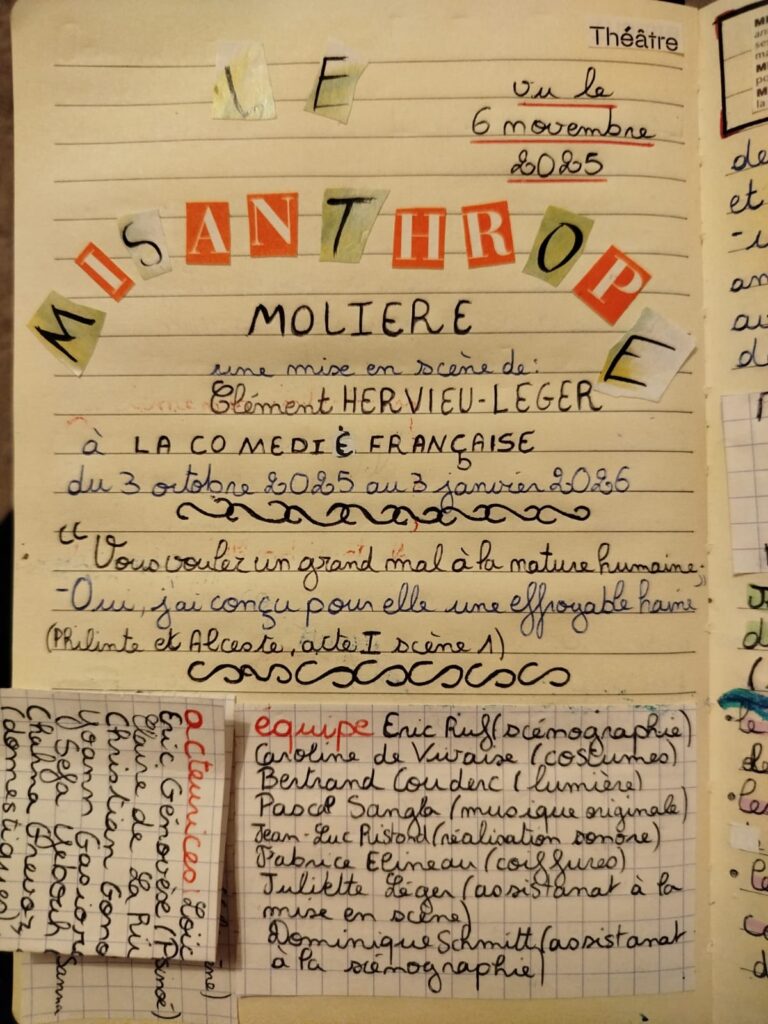 Théâtre
LE
vu le
6 novembre
2025
MISANTHROPE
MOLIERE
une mise en scène de:
Clément HERVIEU-LEGER
à LA COMEDIE FRANÇAISE
du 3 octobre 2025 au 3 janvier 2026
"Vous voulez un grand mal à la nature humaine;
-Oui, j'ai conçu pour elle une effroyable haine"
(Philinte et Alceste, acte I scène 1)
équipe Eric Ruf (scénographie)
Caroline de Vivaise (costumes)
Bertrand Couderc (lumière)
Pascal Sangla (musique originale)
Jean-Luc Ristord (réalisation sonore)
Fabrice Elineau (coiffures)
Juliette Léger (assistanat à la
mise en scène)
Dominique Schmitt (assistanat
à la scénographie)
acteurices: Loïc
Eric Génovèse (
Claire de La Rü
Christian Gono
Yoann Gasior
Sefa Yeboah
(domestiques)